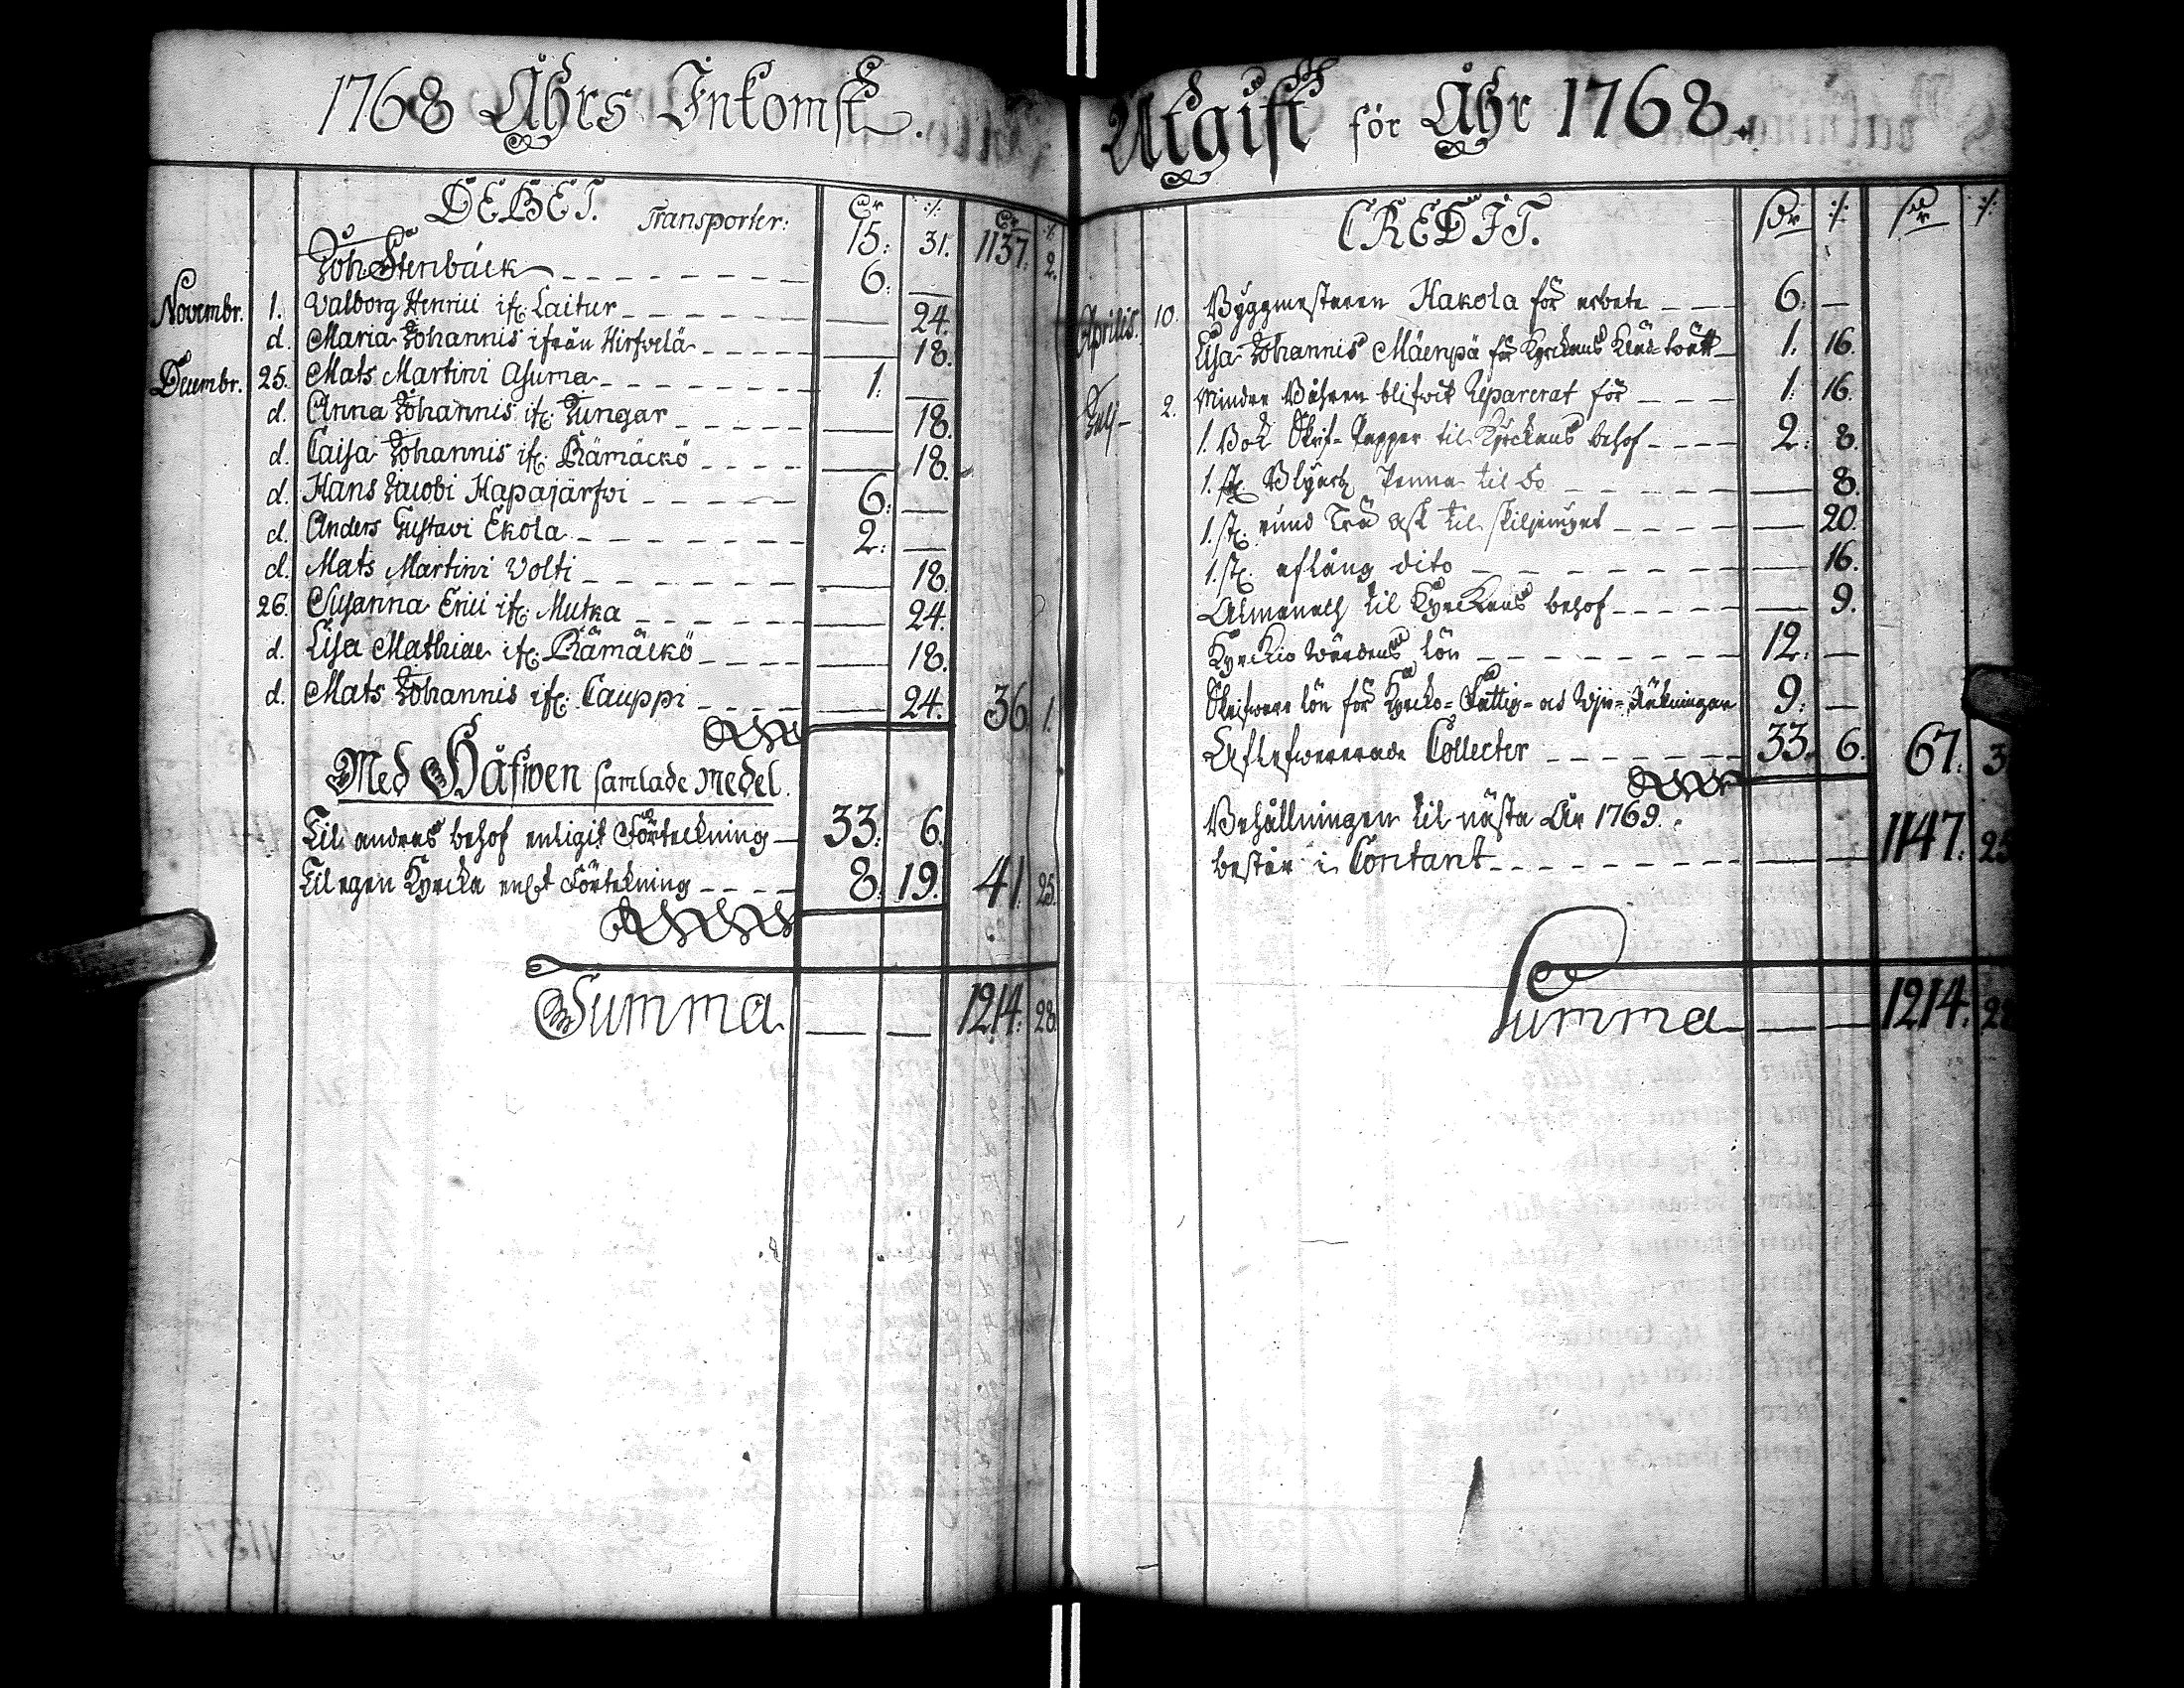 1768 Åhrs Inkomst.
DEBET. Transporter: 15: 31. 1137: 2.
Joh: Stenbäck 6: —
Novembr. 1. Valborg Henrici ifr: Laitur — 24.
d. Maria Johannis ifrån Hirfvelä — 18.
Decembr. 25. Mats Martini Asuma 1: —
d. Anna Johannis ifr: Jungar — 18.
d. Caisa Johannis ifr: Rämäckö — 18.
d. Hans Jacobi Hapajärfvi 6: —
d. Anders Gustavi Ekola 2: —
d. Mats Martini Volti — 18.
26. Susanna Erici ifr: Mutka — 24.
d. Lisa Mathiae ifr: Rämäckö — 18.
d. Mats Johannis ifr: Cauppi — 24. 36. 1.
Med Håfwen samlade medel.
Til andras behof enligit Förteckning — 33: 6.
Til egen Kyrcka enl:t Förtekning 8. 19. 41. 25.
Summa — — 1214: 28.
Utgift för Åhr 1768.
CREDIT.
Aprilis. 10. Byggmesteren Hakola för arbete 6: —
Lisa Johannis Mäenpä för Kyrckans Kläd-twätt 1. 16.
Julj 2. Mindre Båhren blifwit Reparerat för 1: 16.
1. Bok Skrif-Papper til Kyrckans behof 2: 8.
1. st: Blyertz Penna til do — 8.
1. st: rund Trä ask til skiljemynt — 20.
1. st: aflång dito — 16.
Almanach til Kyrckans behof — 9.
Kyrckio Wärdens lön 12: —
Skrifware lön för Kyrcko-Fattig- och Wjn-Räkningar 9: —
Aflefwererade Collecter 33. 6. 67: 3
Behållningen til nästa År 1769.
består i Contant — — 1147: 25
Summa — — 1214: 28